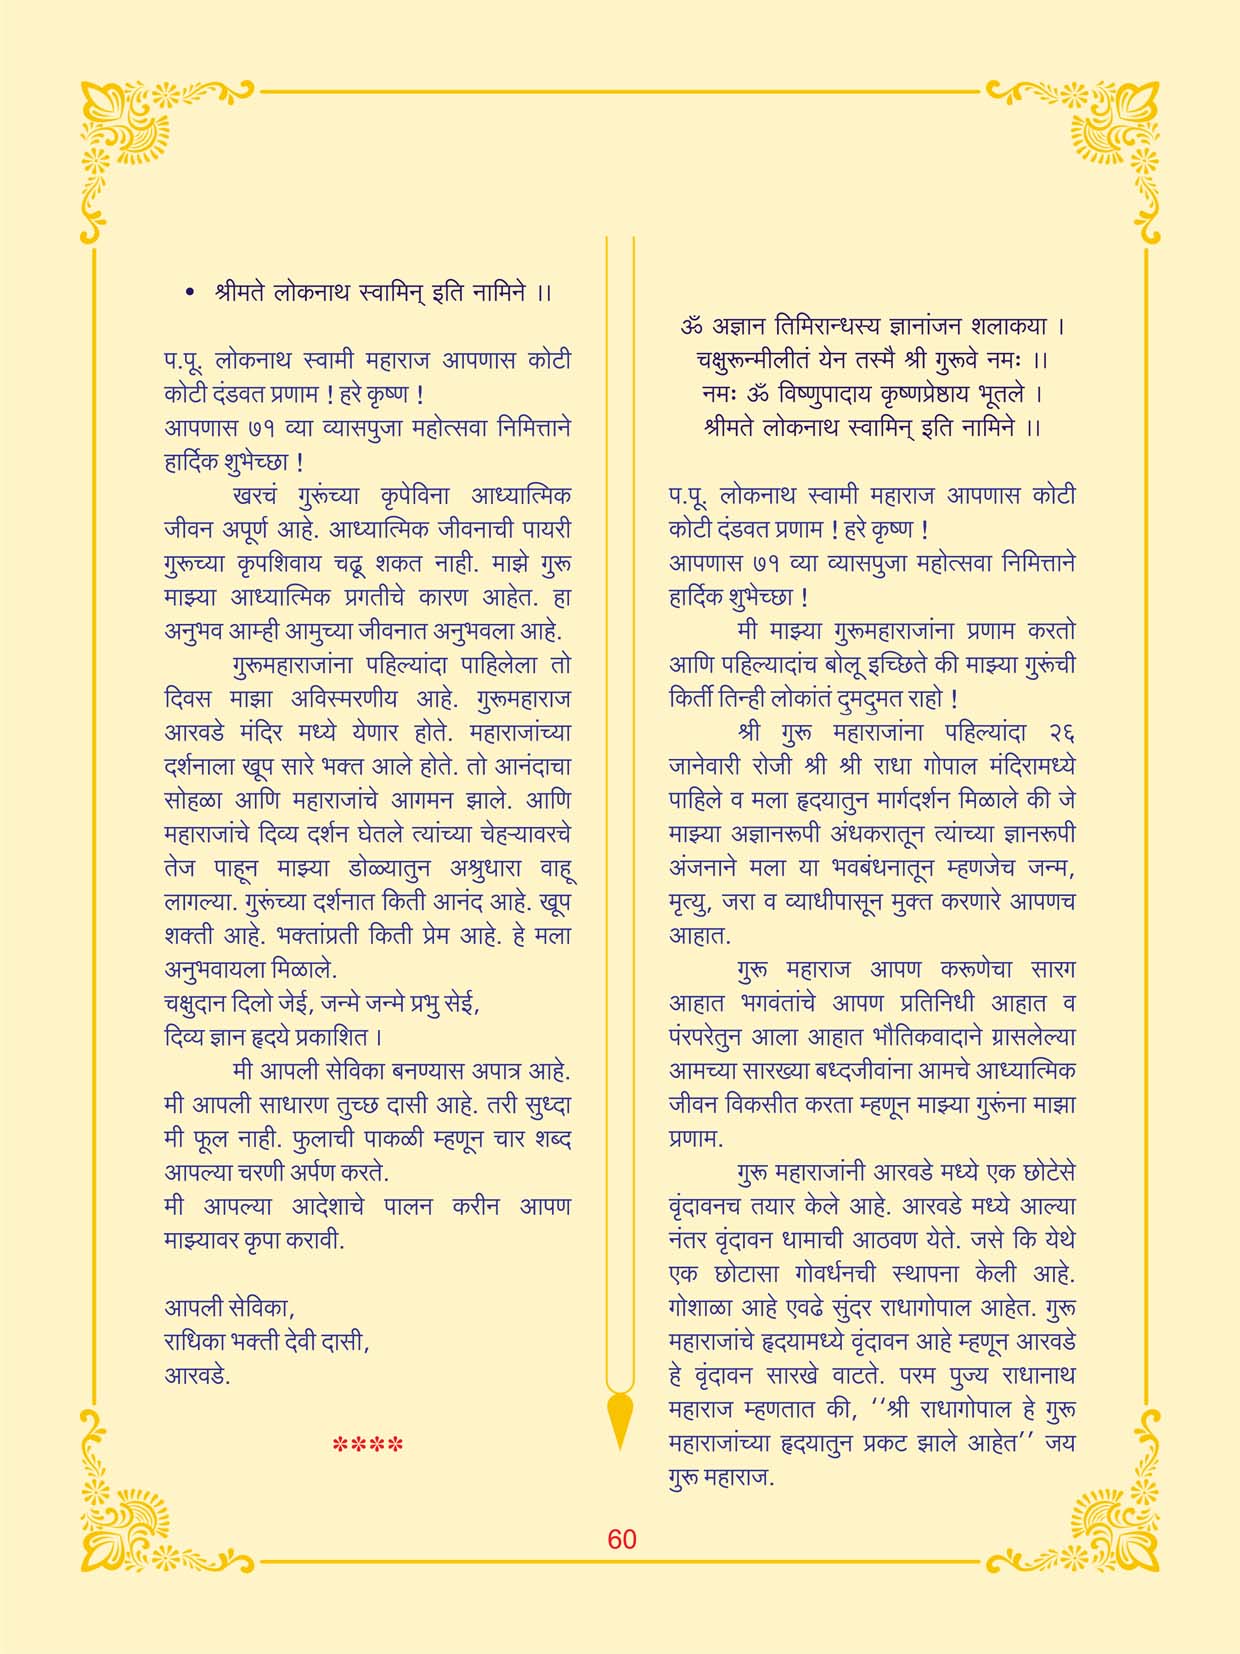 • श्रीमते लोकनाथ स्वामिन् इति नामिने ।।
प.पू. लोकनाथ स्वामी महाराज आपणास कोटी
कोटी दंडवत प्रणाम ! हरे कृष्ण !
आपणास ७१ व्या व्यासपुजा महोत्सवा निमित्ताने
हार्दिक शुभेच्छा !
खरचं गुरूंच्या कृपेविना आध्यात्मिक
जीवन अपूर्ण आहे. आध्यात्मिक जीवनाची पायरी
गुरूच्या कृपशिवाय चढू शकत नाही. माझे गुरू
माझ्या आध्यात्मिक प्रगतीचे कारण आहेत. हा
अनुभव आम्ही आमुच्या जीवनात अनुभवला आहे.
गुरूमहाराजांना पहिल्यांदा पाहिलेला तो
दिवस माझा अविस्मरणीय आहे. गुरूमहाराज
आरवडे मंदिर मध्ये येणार होते. महाराजांच्या
दर्शनाला खूप सारे भक्त आले होते. तो आनंदाचा
सोहळा आणि महाराजांचे आगमन झाले. आणि
महाराजांचे दिव्य दर्शन घेतले त्यांच्या चेहऱ्यावरचे
तेज पाहून माझ्या डोळ्यातुन अश्रुधारा वाहू
लागल्या. गुरूंच्या दर्शनात किती आनंद आहे. खूप
शक्ती आहे. भक्तांप्रती किती प्रेम आहे. हे मला
अनुभवायला मिळाले.
चक्षुदान दिलो जेई, जन्मे जन्मे प्रभु सेई,
दिव्य ज्ञान हृदये प्रकाशित ।
मी आपली सेविका बनण्यास अपात्र आहे.
मी आपली साधारण तुच्छ दासी आहे. तरी सुध्दा
मी फूल नाही. फुलाची पाकळी म्हणून चार शब्द
आपल्या चरणी अर्पण करते.
मी आपल्या आदेशाचे पालन करीन आपण
माझ्यावर कृपा करावी.
आपली सेविका,
राधिका भक्ती देवी दासी,
आरवडे.
****
ॐ अज्ञान तिमिरान्धस्य ज्ञानांजन शलाकया ।
चक्षुरून्मीलीतं येन तस्मै श्री गुरूवे नमः ।।
नमः ॐ विष्णुपादाय कृष्णप्रेष्ठाय भूतले ।
श्रीमते लोकनाथ स्वामिन् इति नामिने ।।
प.पू. लोकनाथ स्वामी महाराज आपणास कोटी
कोटी दंडवत प्रणाम ! हरे कृष्ण !
आपणास ७१ व्या व्यासपुजा महोत्सवा निमित्ताने
हार्दिक शुभेच्छा !
मी माझ्या गुरूमहाराजांना प्रणाम करतो
आणि पहिल्यादांच बोलू इच्छिते की माझ्या गुरूंची
किर्ती तिन्ही लोकांतं दुमदुमत राहो !
श्री गुरू महाराजांना पहिल्यांदा २६
जानेवारी रोजी श्री श्री राधा गोपाल मंदिरामध्ये
पाहिले व मला हृदयातुन मार्गदर्शन मिळाले की जे
माझ्या अज्ञानरूपी अंधकरातून त्यांच्या ज्ञानरूपी
अंजनाने मला या भवबंधनातून म्हणजेच जन्म,
मृत्यु, जरा व व्याधीपासून मुक्त करणारे आपणच
आहात.
गुरू महाराज आपण करूणेचा सारग
आहात भगवंतांचे आपण प्रतिनिधी आहात व
पंरपरेतुन आला आहात भौतिकवादाने ग्रासलेल्या
आमच्या सारख्या बध्दजीवांना आमचे आध्यात्मिक
जीवन विकसीत करता म्हणून माझ्या गुरूंना माझा
प्रणाम.
गुरू महाराजांनी आरवडे मध्ये एक छोटेसे
वृंदावनच तयार केले आहे. आरवडे मध्ये आल्या
नंतर वृंदावन धामाची आठवण येते. जसे कि येथे
एक छोटासा गोवर्धनची स्थापना केली आहे.
गोशाळा आहे एवढे सुंदर राधागोपाल आहेत. गुरू
महाराजांचे हृदयामध्ये वृंदावन आहे म्हणून आरवडे
हे वृंदावन सारखे वाटते. परम पुज्य राधानाथ
महाराज म्हणतात की, ‘‘श्री राधागोपाल हे गुरू
महाराजांच्या हृदयातुन प्रकट झाले आहेत’’ जय
गुरू महाराज.
60